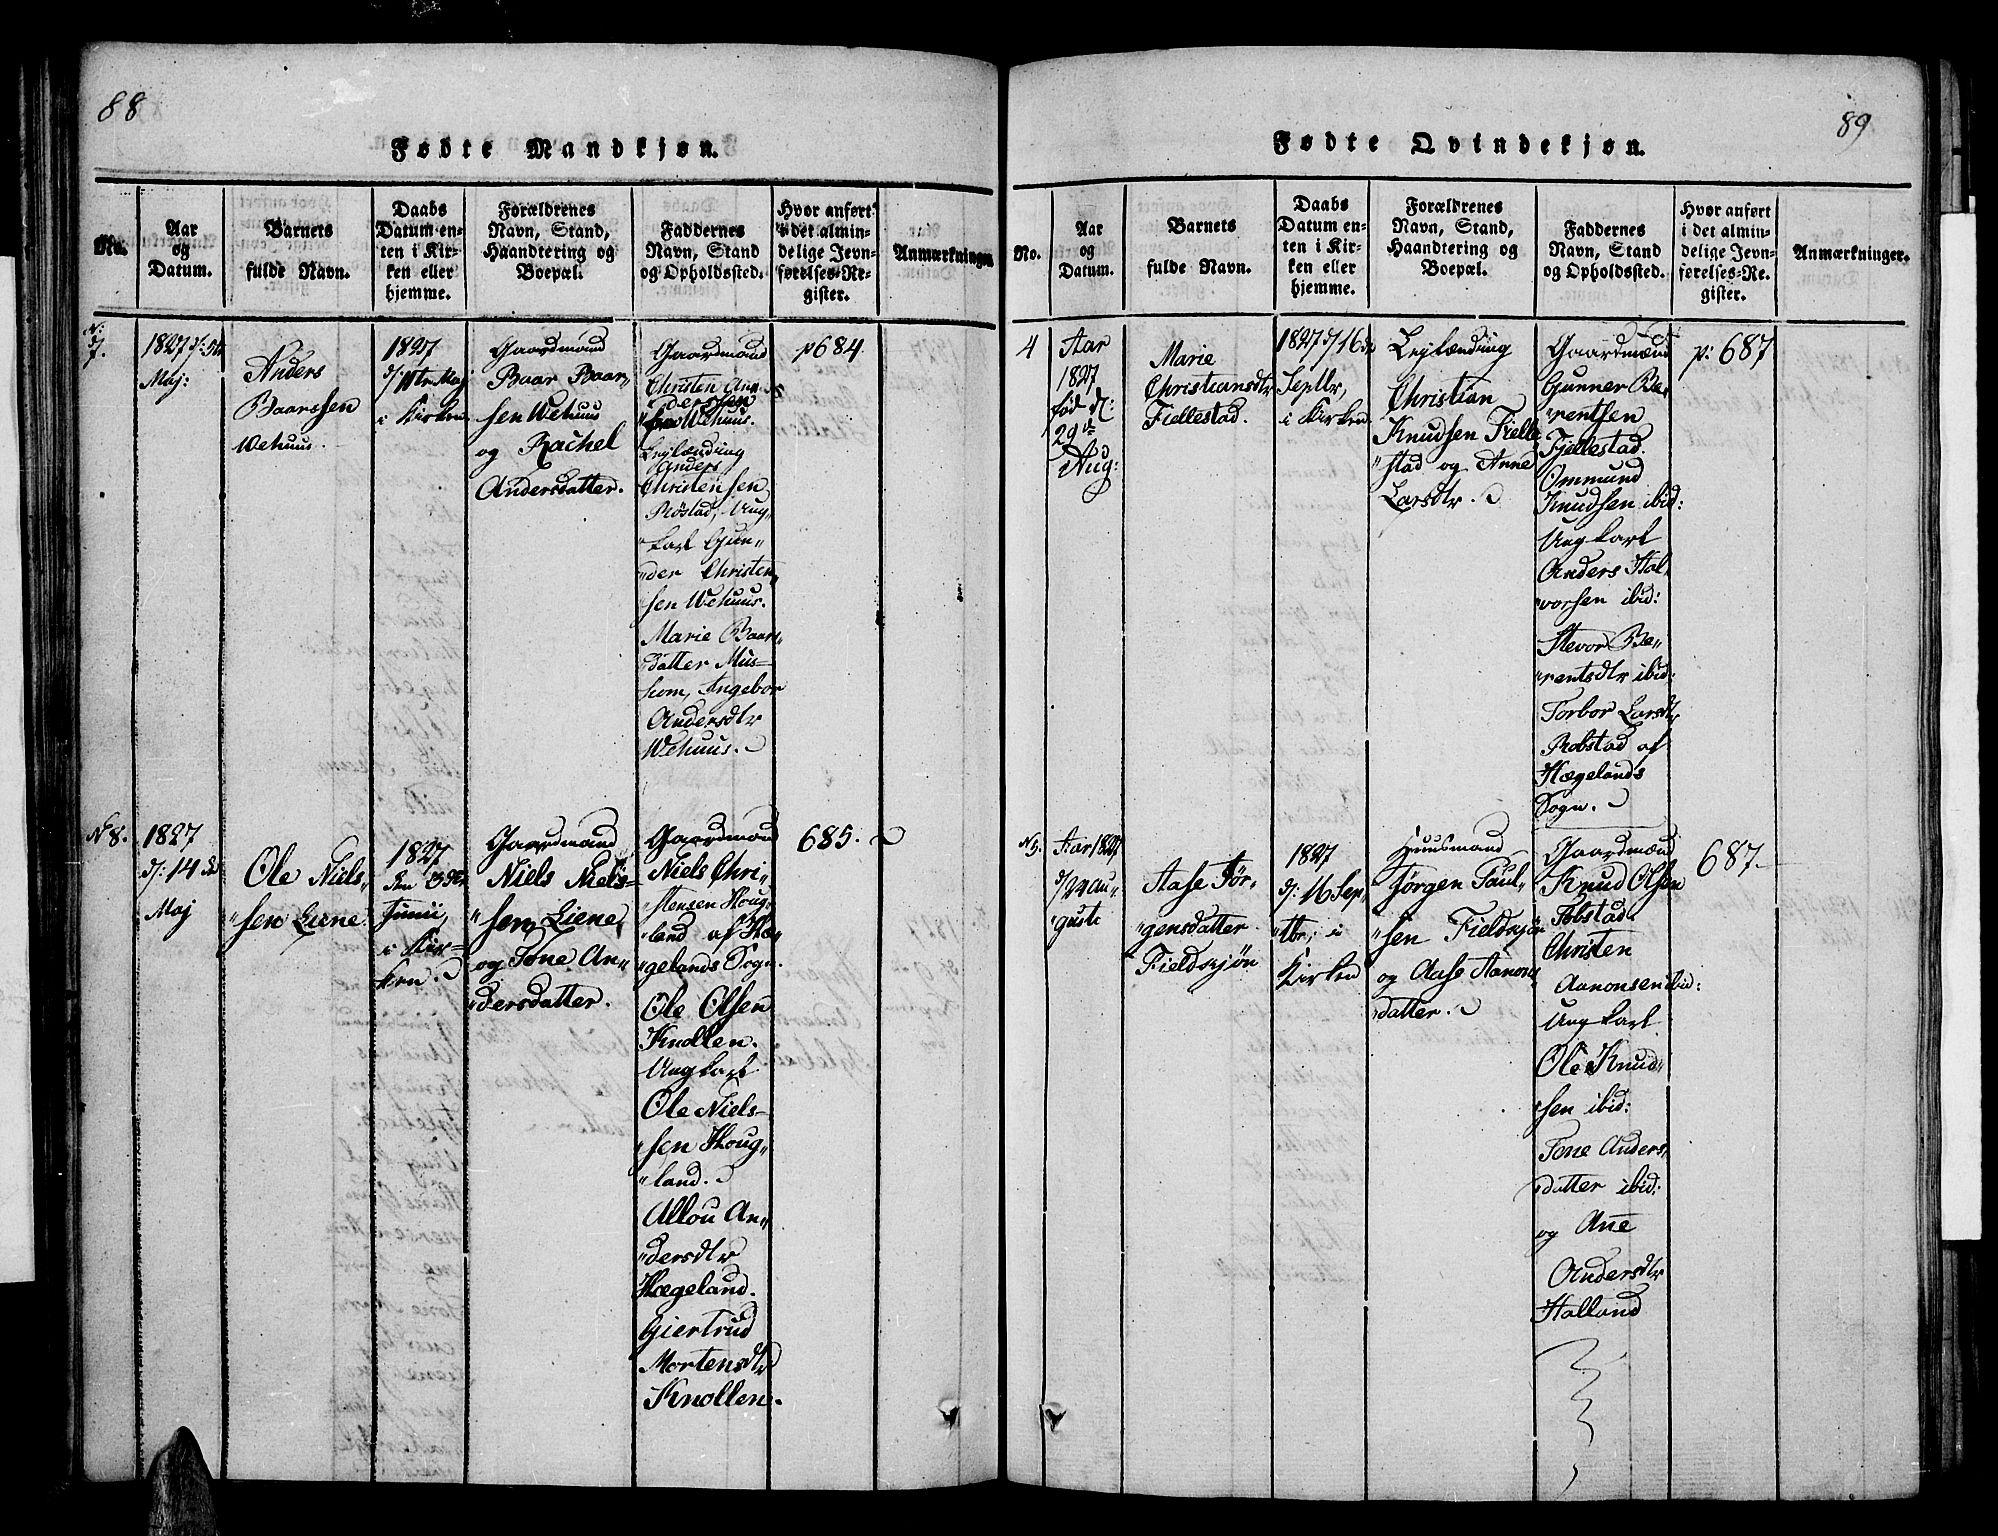 88
Fødte Mandkjøn.
No.
Aar
og
Datum.
Barnets
fulde Navn.
Daabs
Datum en-
ten i Kir-
ken eller
hjemme.
Forældrenes
Navn, Stand,
Haandtering og
Boepæl.
Faddernes
Navn, Stand
og Opholdssted.
Hvor anført
i det almin-
delige Jevn-
førelses-Re-
gister.
Anmærkninger.
N:
7.
1827
Maj:
Anders
Baarssen
Wehuus.
1827
Maj
i Kirken
Gaardmand
Baar Baar„
sen Wehuus
og Rachel
Andersdatter.
Gaardmand
Christen An„
„derssen
Wehuus.
Lejlænding
Anders
Christensen
Røstad, Ung„
„karl Gun„
„der Christen„
„sen Wehuus.
Marie Baars„
„datter Mus-
hom, Angebor
Andersdtr
Wehuus.
p 684.
N 8.
1827
d: 14 de
Maj
Ole Niels„
„sen Liene
1827
den 3die
Junii,
i Kir-
ken.
Gaardmand
Niels Niels-
„sen Liene,
og Tone An„
„dersdatter.
Gaardmand
Niels Chri„
„stensen Houg„
„land af Hæ„
„gelands Sogn.
Ole Olsen
Knollen.
Ungkarl
Ole Niels-
„sen Houg„
„land.
Allou An„
„dersdtr
Hægeland.
Giertrud
Mortensdtr
Knollen.
685.
89
Fødte Qvindekjøn.
No.
Aar
og
Datum.
Barnets
fulde Navn.
Daabs
Datum en-
ten i Kir-
ken eller
hjemme.
Forældrenes
Navn, Stand,
Haandtering og
Boepæl.
Faddernes
Navn, Stand
og Opholdssted.
Hvor anført
i det almin-
delige Jevn-
førelses-Re-
gister.
Anmærkninger.
4
Aar
1827
fød d:
29de
Aug:
Marie
Christiansdtr
Fiellestad.
1827 d/16de
Septbr,
i Kirken
Lejlænding
Christian
Knudsen Fielle
„stad og Anne
Larsdtr.
Gaardmænd
Gunner Be„
„rentsen
Fjellestad.
Ommund
Knudsen ibid:
Ungkarl
Anders Hal„
„vorsen ibid:
Stevor Be„
„rentsdtr ibid:
Torbor Larsdtr
Robstad af
Hægelands
Sogn.
p: 687
N 5.
Aar 1827
Au„
„gusti
Aase Jør„
„gensdatter
Fieldsgjøn
1827
d: 16 Sep„
„tbr, i
Kirken
Huusmand
Jørgen Paul„
„sen Fieldsgjøn
og Aase Aanons„
„datter.
Gaardmænd
Knud Olsen
Tobstad.
Christen
Aanonsen ibid:
Ungkarl
Ole Knud„
„sen ibid:
Tone Anders„
„datter ibid:
og Ane
Andersdtr
Halland
687.